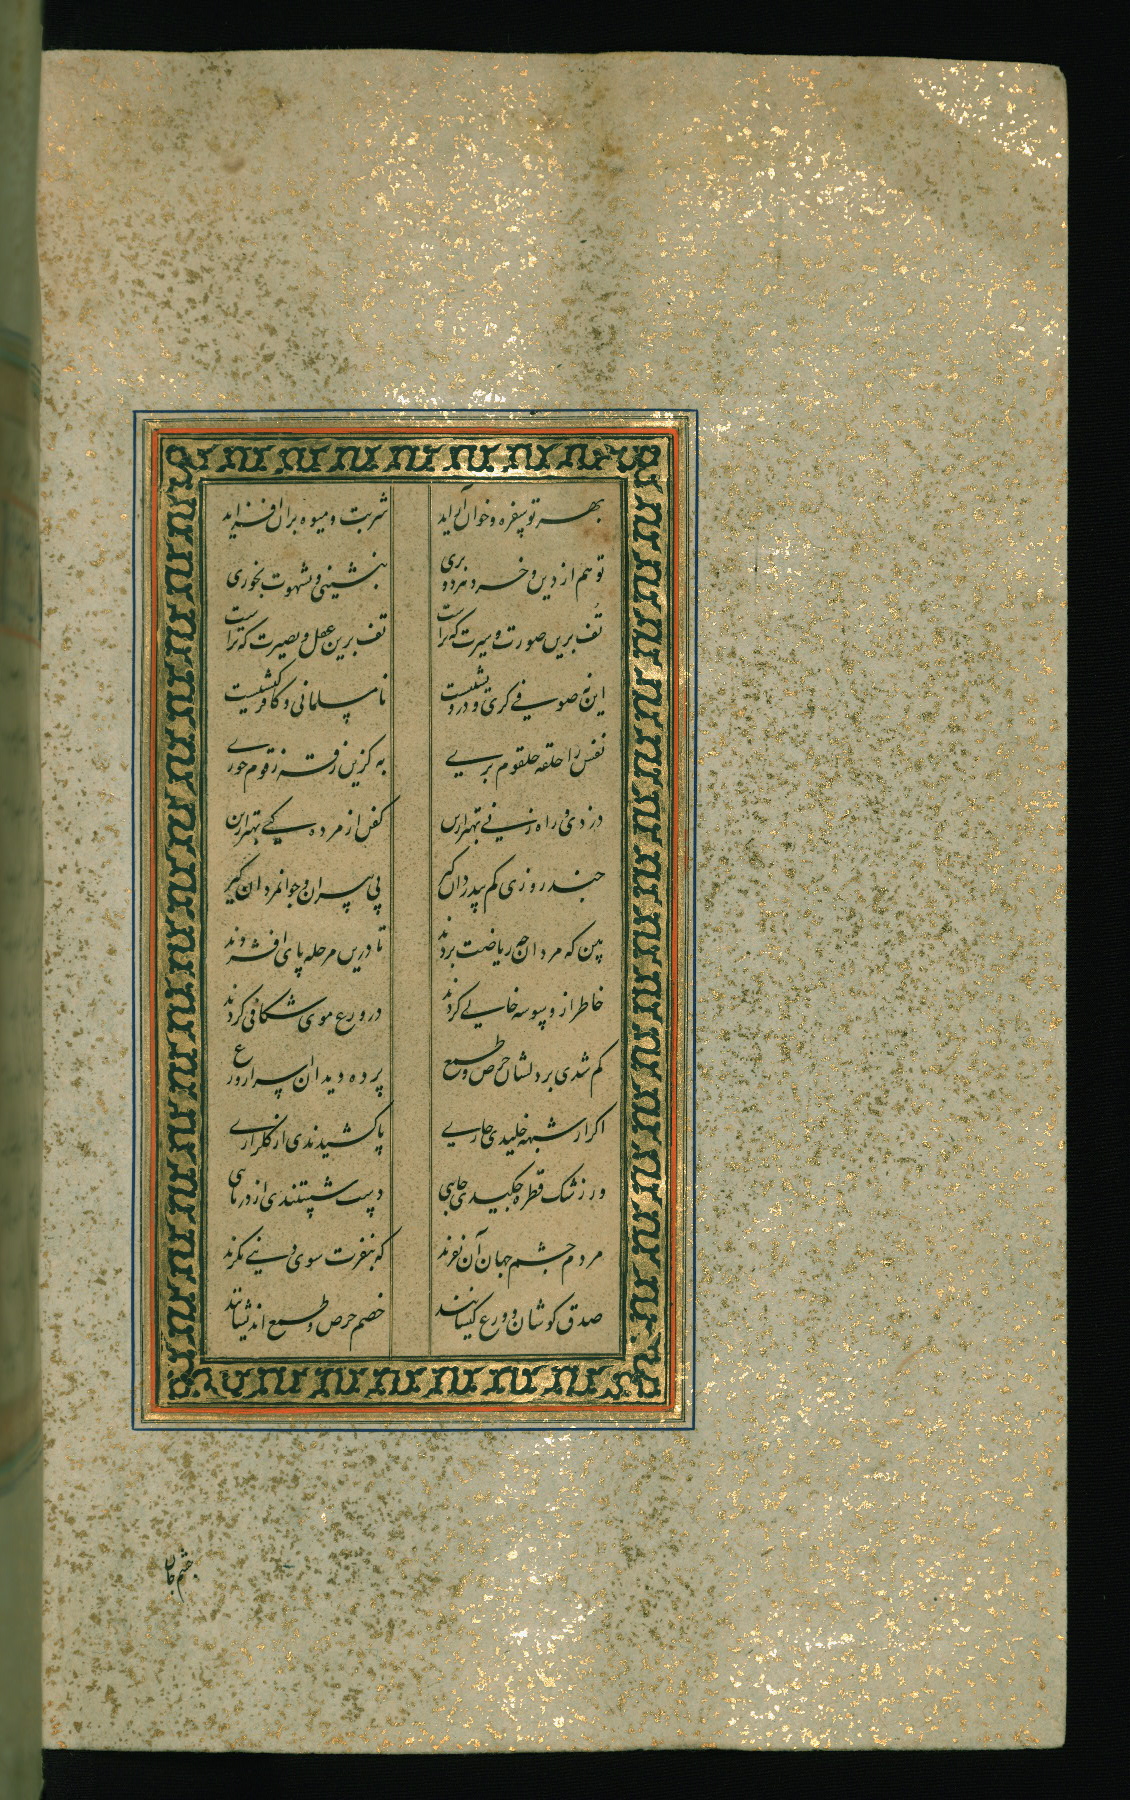 بهر تو سفره و خوان آراید شربت و میوه بران افزاید
تو هم از دین و خرد بری بنشینی و بشهوت بخوری
تف برین صورت و سیرت که تراست تف برین عقل و بصیرت که تراست
این نه صوفی گری و درویشیست نامسلمانی و کافر کیشیست
نفس را حلقه حلقوم بری به کزین زقوم خوری
دزدی و راه زنی بهتر ازین کفن از مرده کنی بهتر ازین
چند روزی کم بیدردان گیر پی پیران و جوانمردان گیر
بین که مردان چه ریاضت بردند تا درین مرحله پای افشردند
خاطر از وسوسه خالی کردند در ورع موی شکافی کردند
کم شدی بر دلشان حرص و طمع پرده دیدن اسرار ورع
اگر از شبهه خلیدی خاری پا کشیدندی از گلزاری
ور ز شک قطره چکیدی جایی دست شستندی از دریایی
مردم چشم جهان آن نفرند که بنفرت سوی دنیی نگرند
صدق کوشان و ورع کیشانند خصم حرص و طمع اندیشانند
چشم جان